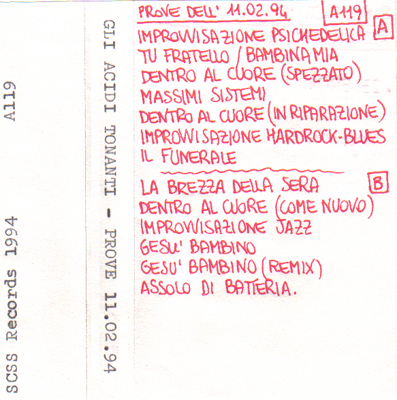 PROVE DELL' 11.02.94
A119
A
IMPROVVISAZIONE PSICHEDELICA
TU FRATELLO / BAMBINA MIA
DENTRO AL CUORE (SPEZZATO)
MASSIMI SISTEMI
DENTRO AL CUORE (IN RIPARAZIONE)
IMPROVVISAZIONE HARDROCK-BLUES
IL FUNERALE
B
LA BREZZA DELLA SERA
DENTRO AL CUORE (COME NUOVO)
IMPROVVISAZIONE JAZZ
GESU' BAMBINO
GESU' BAMBINO (REMIX)
ASSOLO DI BATTERIA.
GLI ACIDI TONANTI - PROVE 11.02.94
SCSS Records 1994 A119